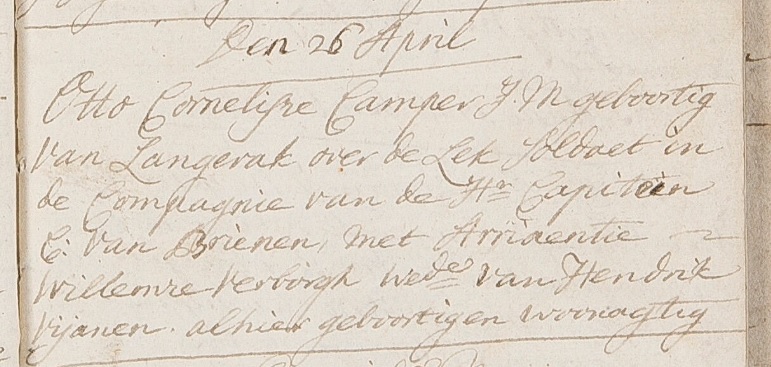 Den 26 April
Otto Cornelisse Camper J. M geboortig
van Langerak over de Lek Soldaet in
de Compagnie van de Hr Capitein
C: van Brienen, met Arriaentie
Willemse Verborgh wede van Hendrik
Vijanen. alhier geboortig en woonagtig